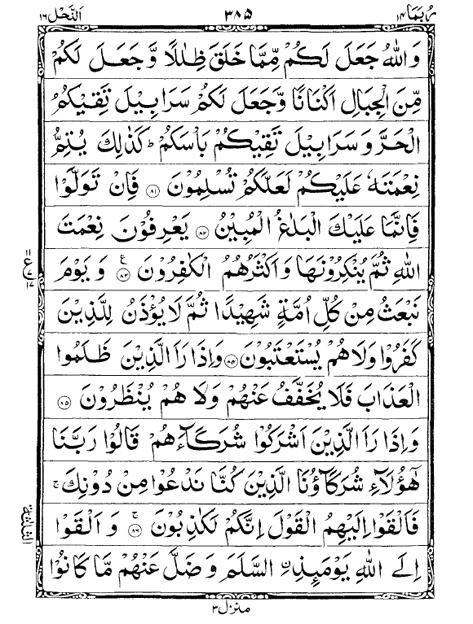 رُبَمَا ١٤
٣٨٥
اَلنَّحْل ١٦
وَاللّٰهُ جَعَلَ لَكُمْ مِّمَّا خَلَقَ ظِلٰلًا وَّجَعَلَ لَكُمْ
مِّنَ الْجِبَالِ اَكْنَانًا وَّجَعَلَ لَكُمْ سَرَابِيْلَ تَقِيْكُمُ
الْحَرَّ وَسَرَابِيْلَ تَقِيْكُمْ بَاْسَكُمْ ؕ كَذٰلِكَ يُتِمُّ
نِعْمَتَهٗ عَلَيْكُمْ لَعَلَّكُمْ تُسْلِمُوْنَ ﴿٨١﴾ فَاِنْ تَوَلَّوْا
فَاِنَّمَا عَلَيْكَ الْبَلٰغُ الْمُبِيْنُ ﴿٨٢﴾ يَعْرِفُوْنَ نِعْمَتَ
اللّٰهِ ثُمَّ يُنْكِرُوْنَهَا وَاَكْثَرُهُمُ الْكٰفِرُوْنَ ﴿٨٣﴾ وَيَوْمَ
نَبْعَثُ مِنْ كُلِّ اُمَّةٍ شَهِيْدًا ثُمَّ لَا يُؤْذَنُ لِلَّذِيْنَ
كَفَرُوْا وَلَا هُمْ يُسْتَعْتَبُوْنَ ﴿٨٤﴾ وَاِذَا رَاَ الَّذِيْنَ ظَلَمُوا
الْعَذَابَ فَلَا يُخَفَّفُ عَنْهُمْ وَلَا هُمْ يُنْظَرُوْنَ ﴿٨٥﴾
وَاِذَا رَاَ الَّذِيْنَ اَشْرَكُوْا شُرَكَآءَهُمْ قَالُوْا رَبَّنَا
هٰٓؤُلَآءِ شُرَكَآؤُنَا الَّذِيْنَ كُنَّا نَدْعُوْا مِنْ دُوْنِكَ ۚ
فَاَلْقَوْا اِلَيْهِمُ الْقَوْلَ اِنَّكُمْ لَكٰذِبُوْنَ ﴿٨٦﴾ وَاَلْقَوْا
اِلَى اللّٰهِ يَوْمَئِذِ ِۨالسَّلَمَ وَضَلَّ عَنْهُمْ مَّا كَانُوْا
منزل ٣